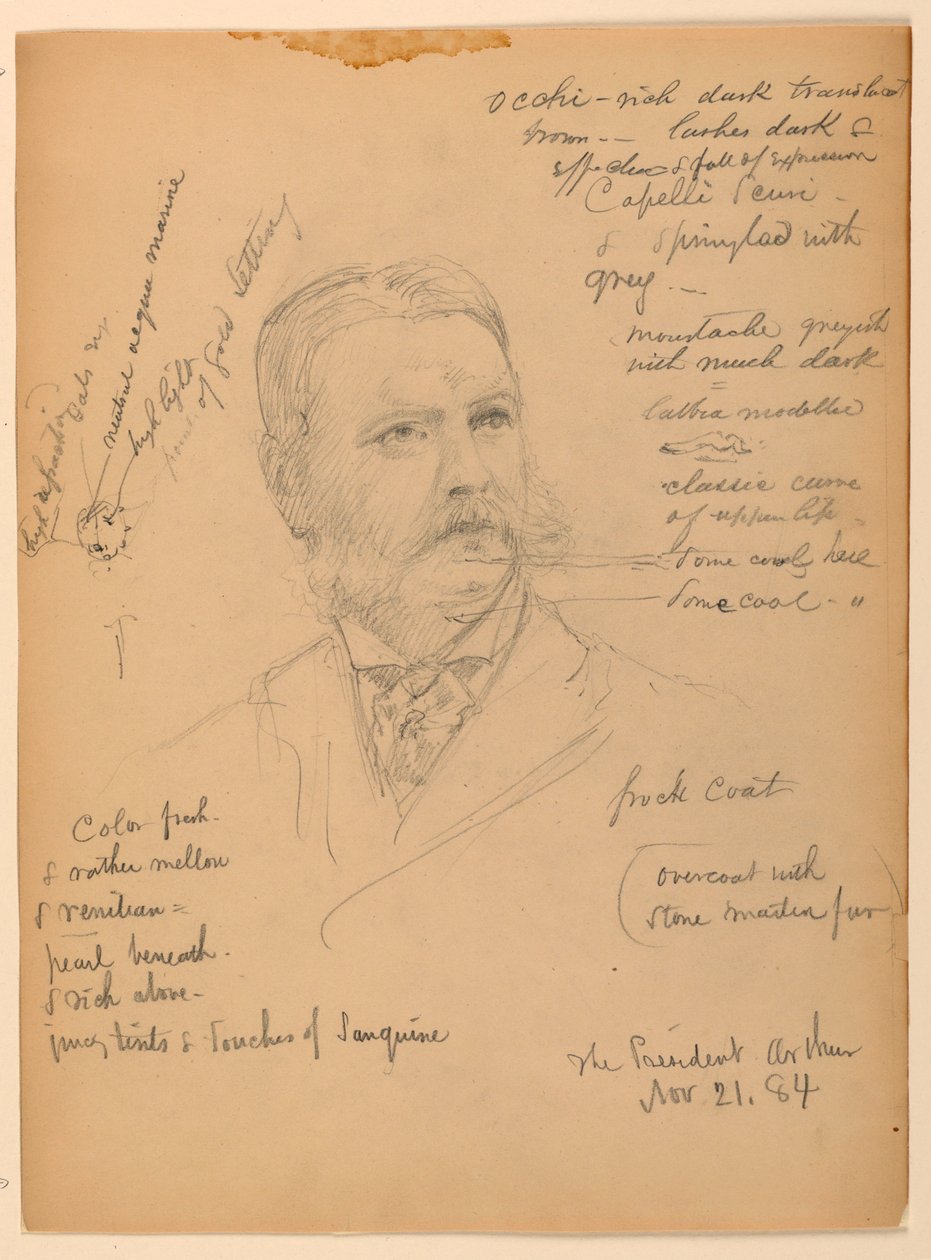 Occhi – rich dark translucent
brown -- lashes dark &
effective & full of expression
Capelli Scuri –
& sprinkled with
grey --
moustache greyish
with much dark
labbia modelle
classic curve
of upper lip
Some cool here
Some cool - "
high
neutral acque marine
high light
of gold setting
Color fresh -
& rather mellow
& venitian =
pearl beneath -
& rich above -
juicy tints & touches of Sanguine
frock coat
(overcoat with
stone marten fur)
The President Arthur
Nov 21. 84